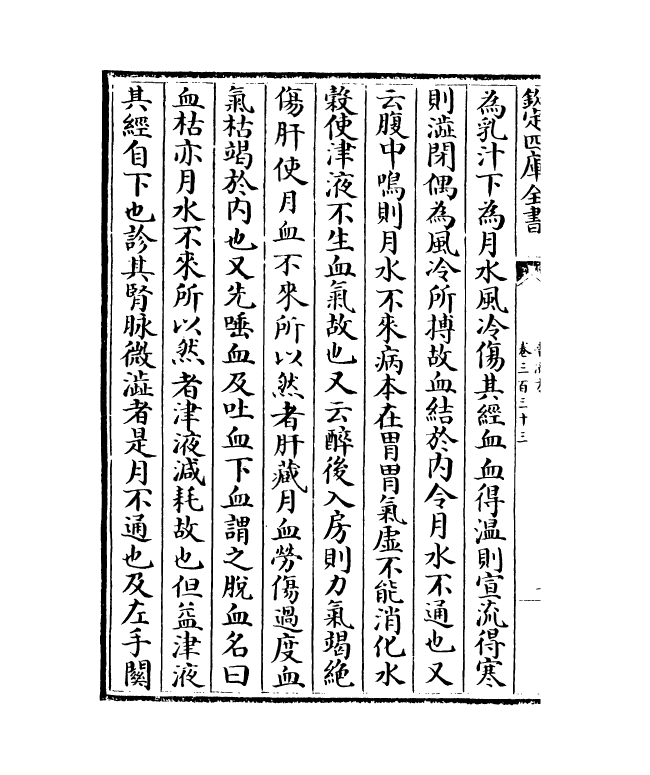 欽定四庫全書
卷三百三十三
為乳汁下為月水風冷傷其經血血得温則宣流得寒
則澁閉偶為風冷所搏故血結於内令月水不通也又
云腹中鳴則月水不來病本在胃胃氣虚不能消化水
榖使津液不生血氣故也又云醉後入房則力氣竭絶
傷肝使月血不來所以然者肝藏月血勞傷過度血
氣枯竭於内也又先唾血及吐血下血謂之脱血名曰
血枯亦月水不來所以然者津液減耗故也但益津液
其經自下也診其腎脉微澁者是月不通也及左手關